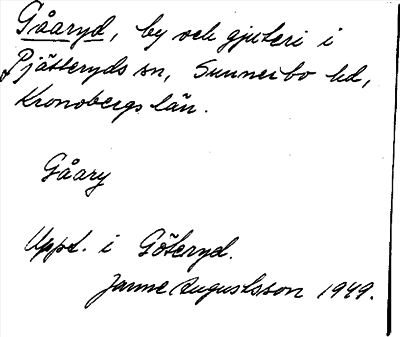 Gåaryd, by och gjuteri i
Pjätteryds sn, Sunnerbo hd,
Kronobergs län.
Gåary
Uppt. i Göteryd.
Janne Augustsson 1949.